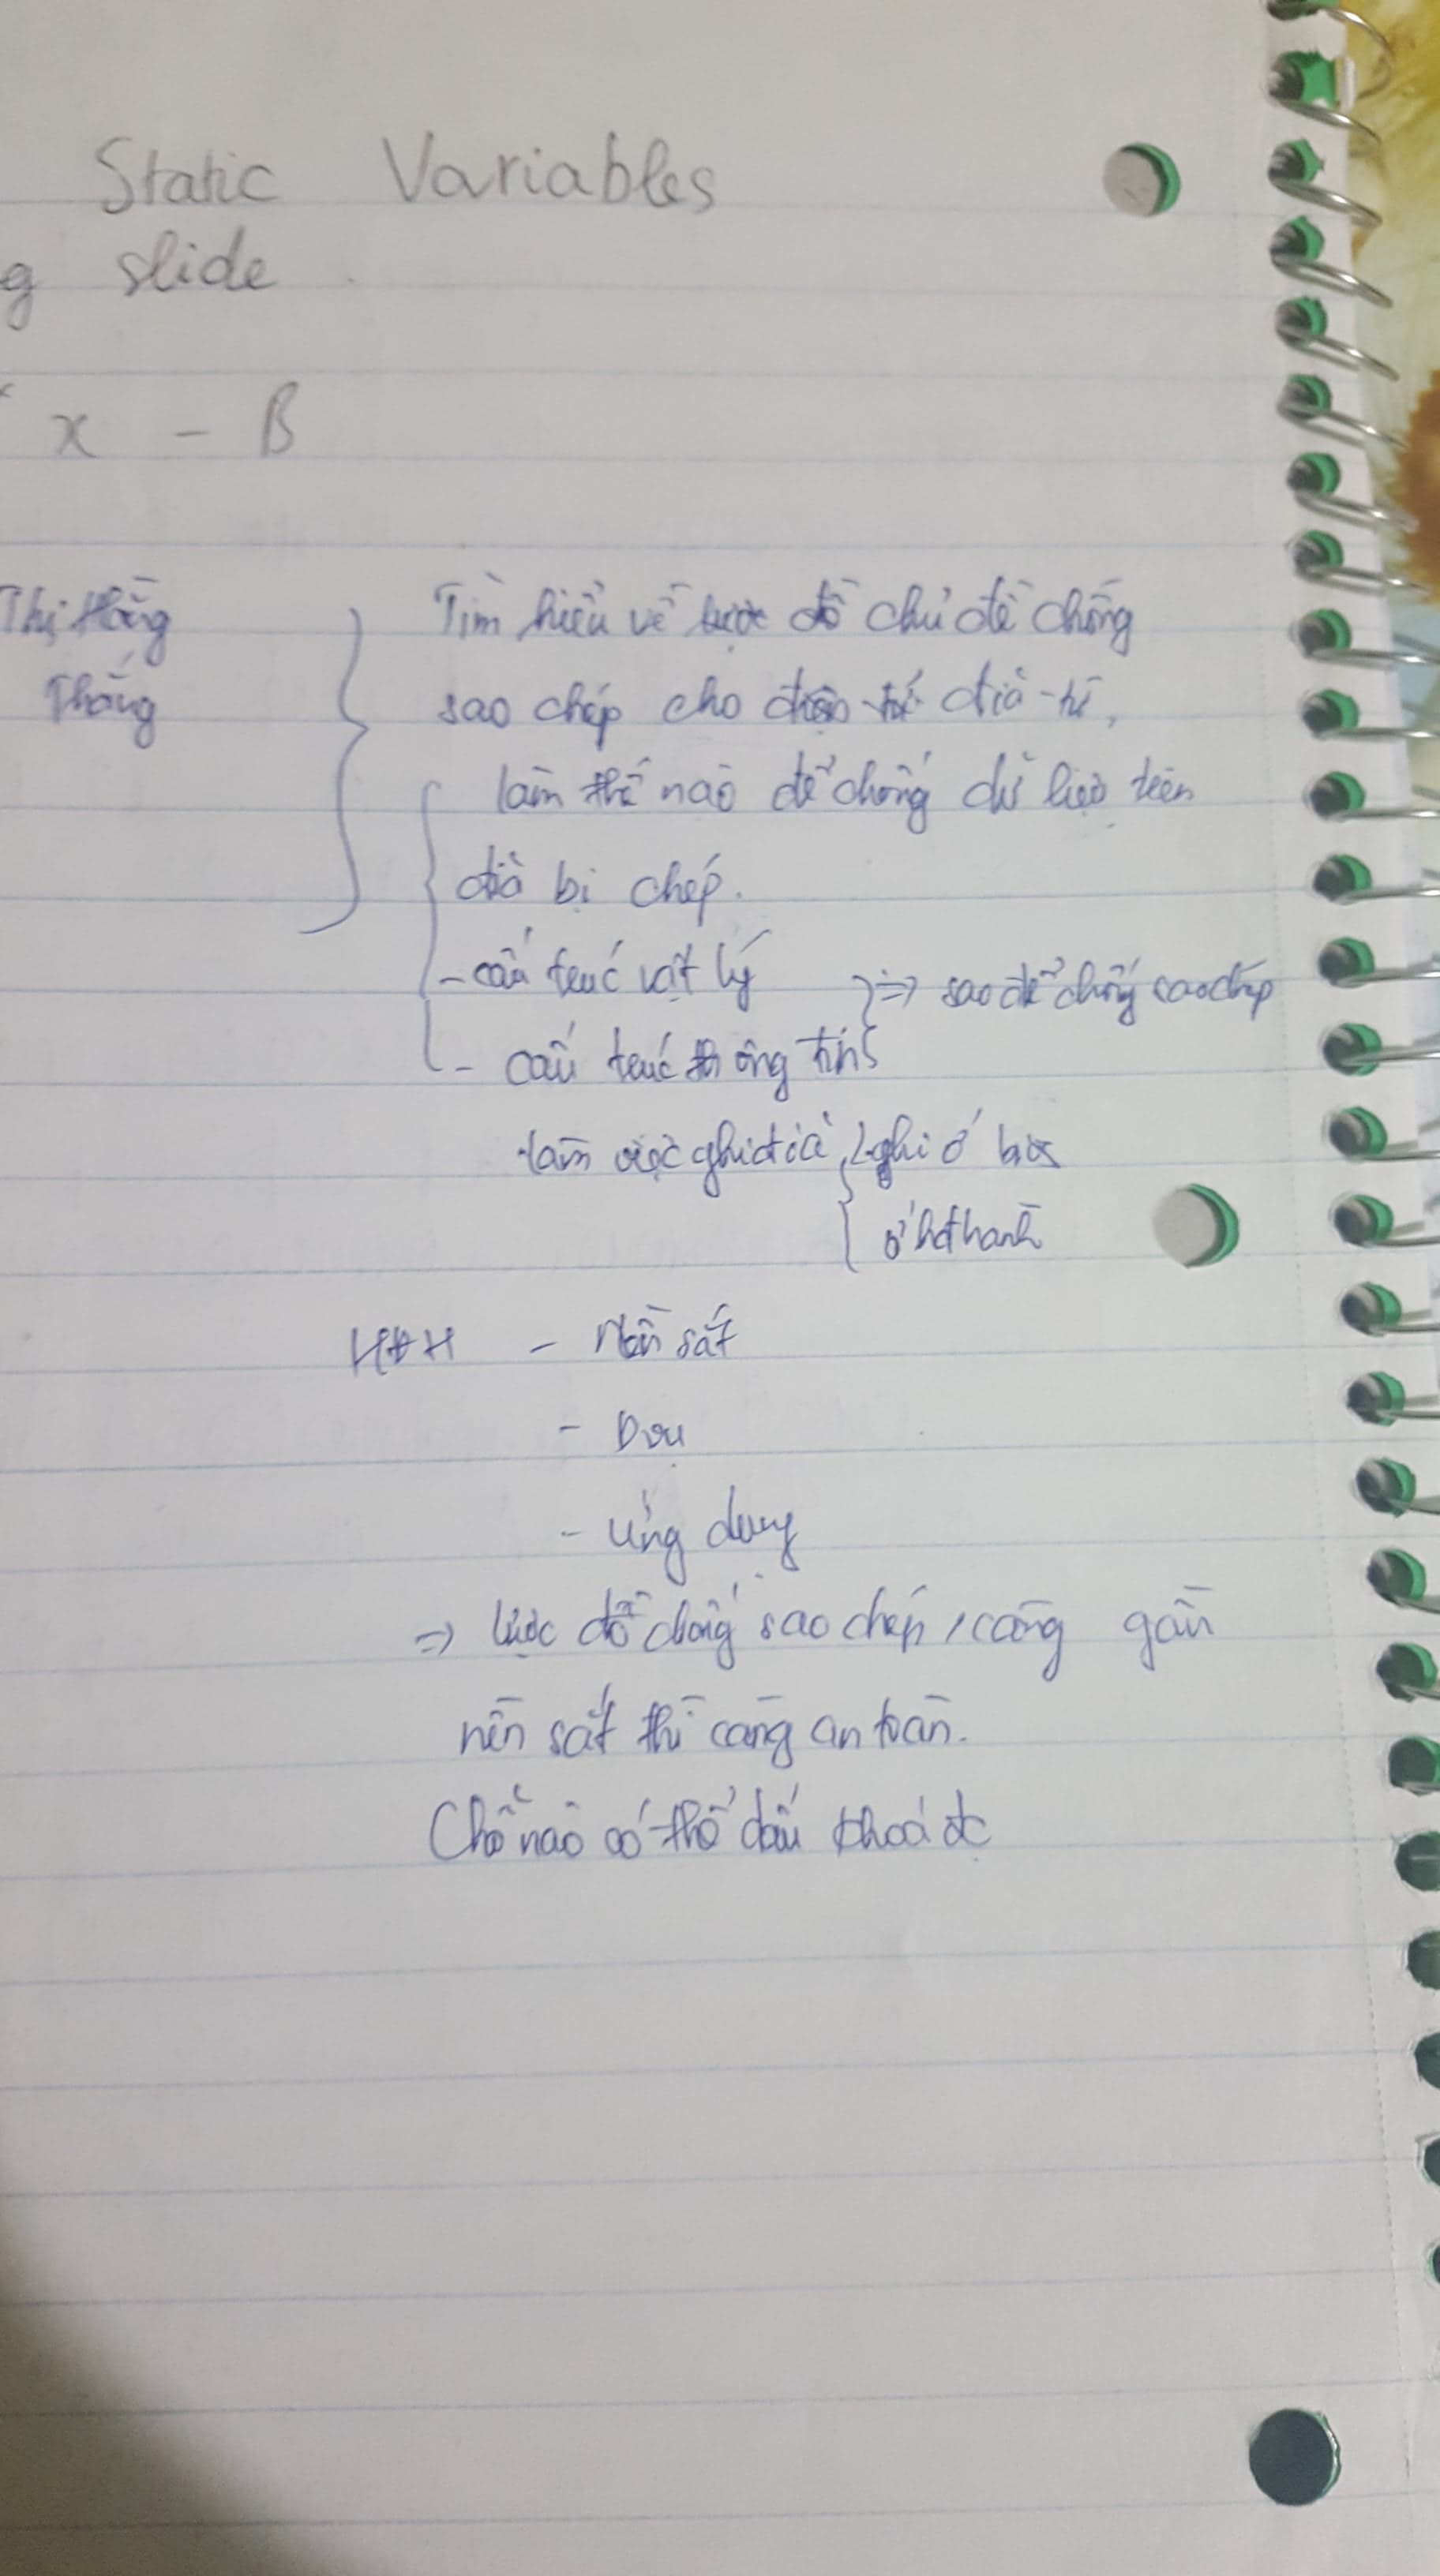 Static Variables
g slide
x - B
Thị Hằng
Thắng
Tìm hiểu về lược đồ chủ đề chống
sao chép cho đĩa từ,
làm thế nào để chống dữ liệu trên
đĩa bị chép.
- cấu trúc vật lý
=> sao để chống sao chép
- cấu trúc thông tin
làm việc ghi đĩa ghi ở bios
ở hđhành
HĐH - Nền sắt
- Dou
- Ứng dụng
=> lược đồ chống sao chép, càng gần
nền sắt thì càng an toàn.
Chỗ nào có thể dấu khoá đc